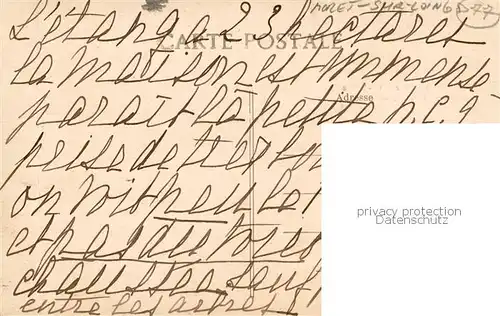 MORET-SUR-LOING S-77
L'étang a 23 hectares
CARTE POSTALE
la maison est immense
Adresse
paraît la petite p.c. 9
prise de
on voit peu le
privacy protection
Datenschutz
et pas du tout les
chaussées, sauf
entre les arbres